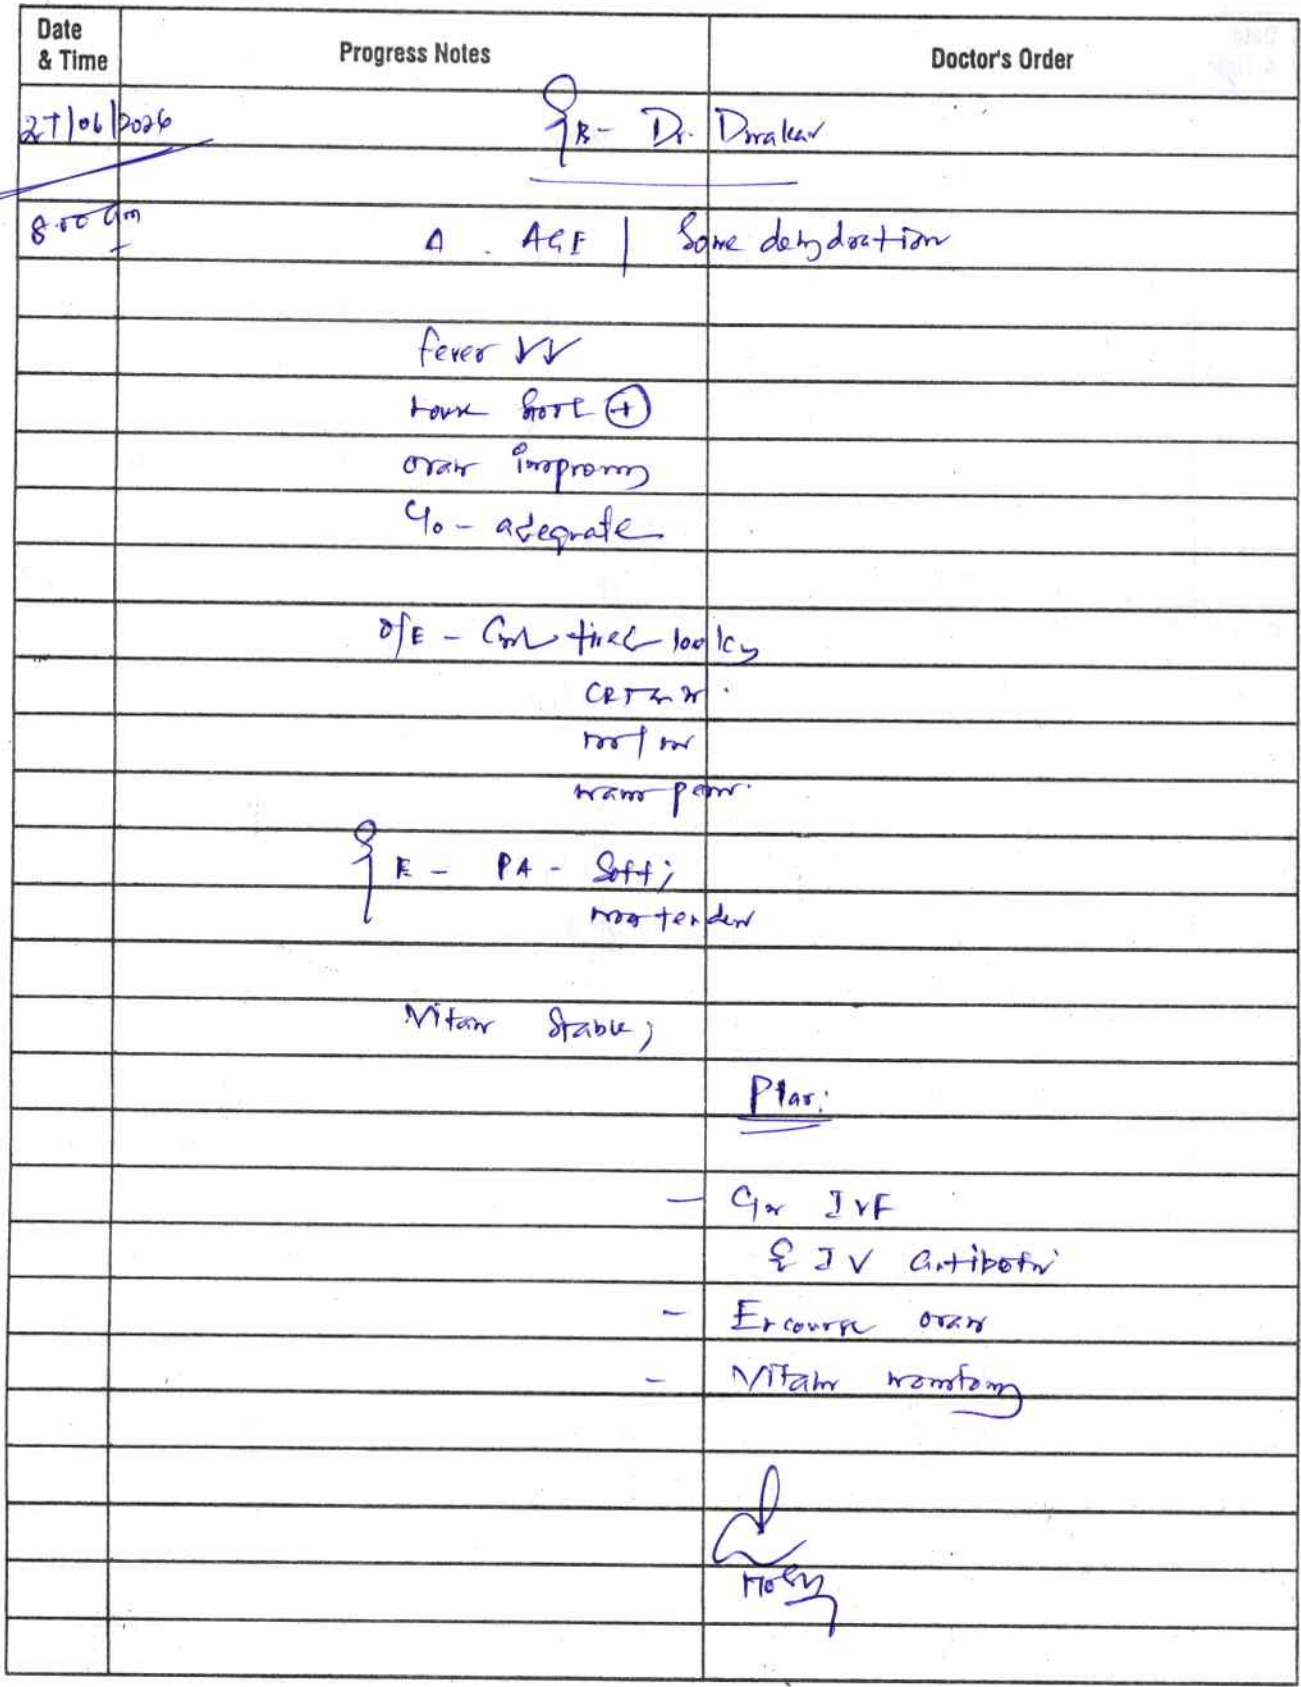 Date & Time
Progress Notes
Doctor's Order
27/06/2026
B- Dr. Dwakar
8.00 am
Δ . AGE | Some dehydration
fever ↓↓
loose stool ⊕
oral improving
U/o - adequate
O/E - tired looking
CRT
warm peri
E - PA - Soft;
non tender
Vitals stable;
Plan:
- IVF
& IV Antibiotic
- Encourage oral
- Vitals monitoring